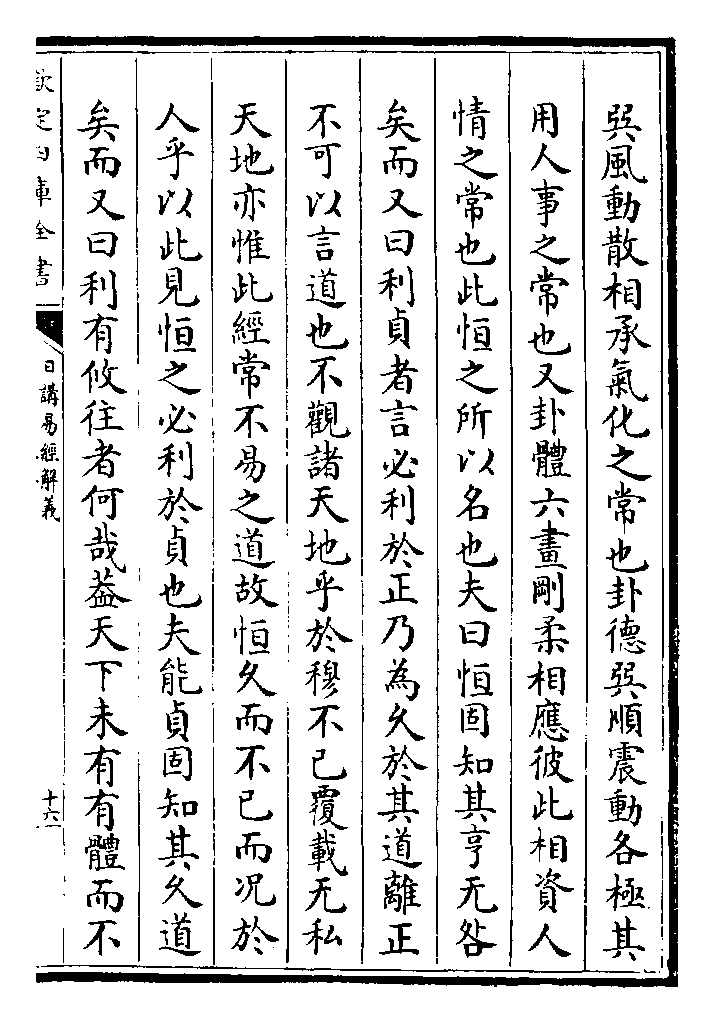 巽風動散相承氣化之常也卦德巽順震動各極其
用人事之常也又卦體六畫剛柔相應彼此相資人
情之常也此恒之所以名也夫曰恒固知其亨无咎
矣而又曰利貞者言必利於正乃為久於其道離正
不可以言道也不觀諸天地乎於穆不已覆載无私
天地亦惟此經常不易之道故恒久而不已而况於
人乎以此見恒之必利於貞也夫能貞固知其久道
矣而又曰利有攸往者何哉葢天下未有有體而不
欽定四庫全書
日講易經解義
十六